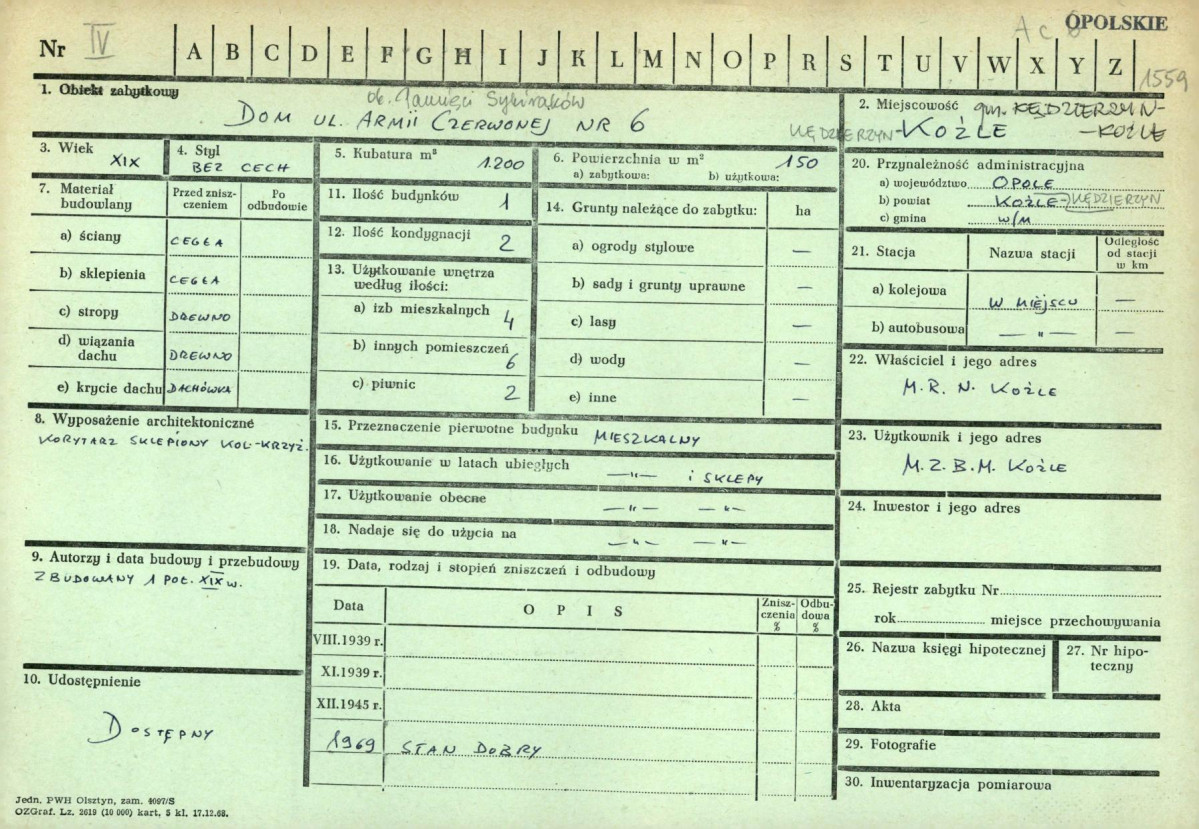 OPOLSKIE
Nr IV A B C D E F G H I J K L M N O P R S T U V W X Y Z
1559
1. Obiekt zabytkowy
ob. Pamięci Sybiraków
DOM UL. ARMII CZERWONEJ NR 6
2. Miejscowość gm. KĘDZIERZYN-
KĘDZIERZYN-KOŹLE -KOŹLE
3. Wiek XIX
4. Styl BEZ CECH
5. Kubatura m³ 1.200
6. Powierzchnia w m² 150
a) zabytkowa: b) użytkowa:
7. Materiał budowlany
Przed zniszczeniem
Po odbudowie
a) ściany CEGŁA
b) sklepienia CEGŁA
c) stropy DREWNO
d) wiązania dachu DREWNO
e) krycie dachu DACHÓWKA
8. Wyposażenie architektoniczne
KORYTARZ SKLEPIONY KOL-KRZYŻ.
9. Autorzy i data budowy i przebudowy
ZBUDOWANY 1 POŁ. XIX w.
10. Udostępnienie
DOSTĘPNY
11. Ilość budynków 1
12. Ilość kondygnacji 2
13. Użytkowanie wnętrza według ilości:
a) izb mieszkalnych 4
b) innych pomieszczeń 6
c) piwnic 2
14. Grunty należące do zabytku: ha
a) ogrody stylowe —
b) sady i grunty uprawne —
c) lasy —
d) wody —
e) inne —
15. Przeznaczenie pierwotne budynku MIESZKALNY
16. Użytkowanie w latach ubiegłych —"— i SKLEPY
17. Użytkowanie obecne —"— —"—
18. Nadaje się do użycia na —"— —"—
19. Data, rodzaj i stopień zniszczeń i odbudowy
Data OPIS Zniszczenia % Odbudowa %
VIII.1939 r.
XI.1939 r.
XII.1945 r.
1969 STAN DOBRY
20. Przynależność administracyjna
a) województwo OPOLE
b) powiat KOŹLE-KĘDZIERZYN
c) gmina W/M
21. Stacja Nazwa stacji Odległość od stacji w km
a) kolejowa W MIEJSCU —
b) autobusowa —"— —
22. Właściciel i jego adres
M.R.N. KOŹLE
23. Użytkownik i jego adres
M.Z.B.M. KOŹLE
24. Inwestor i jego adres
25. Rejestr zabytku Nr
rok miejsce przechowywania
26. Nazwa księgi hipotecznej
27. Nr hipoteczny
28. Akta
29. Fotografie
30. Inwentaryzacja pomiarowa
Jedn. PWH Olsztyn, zam. 4097/S
OZGraf. Lz. 2619 (10 000) kart, 5 kl. 17.12.68.